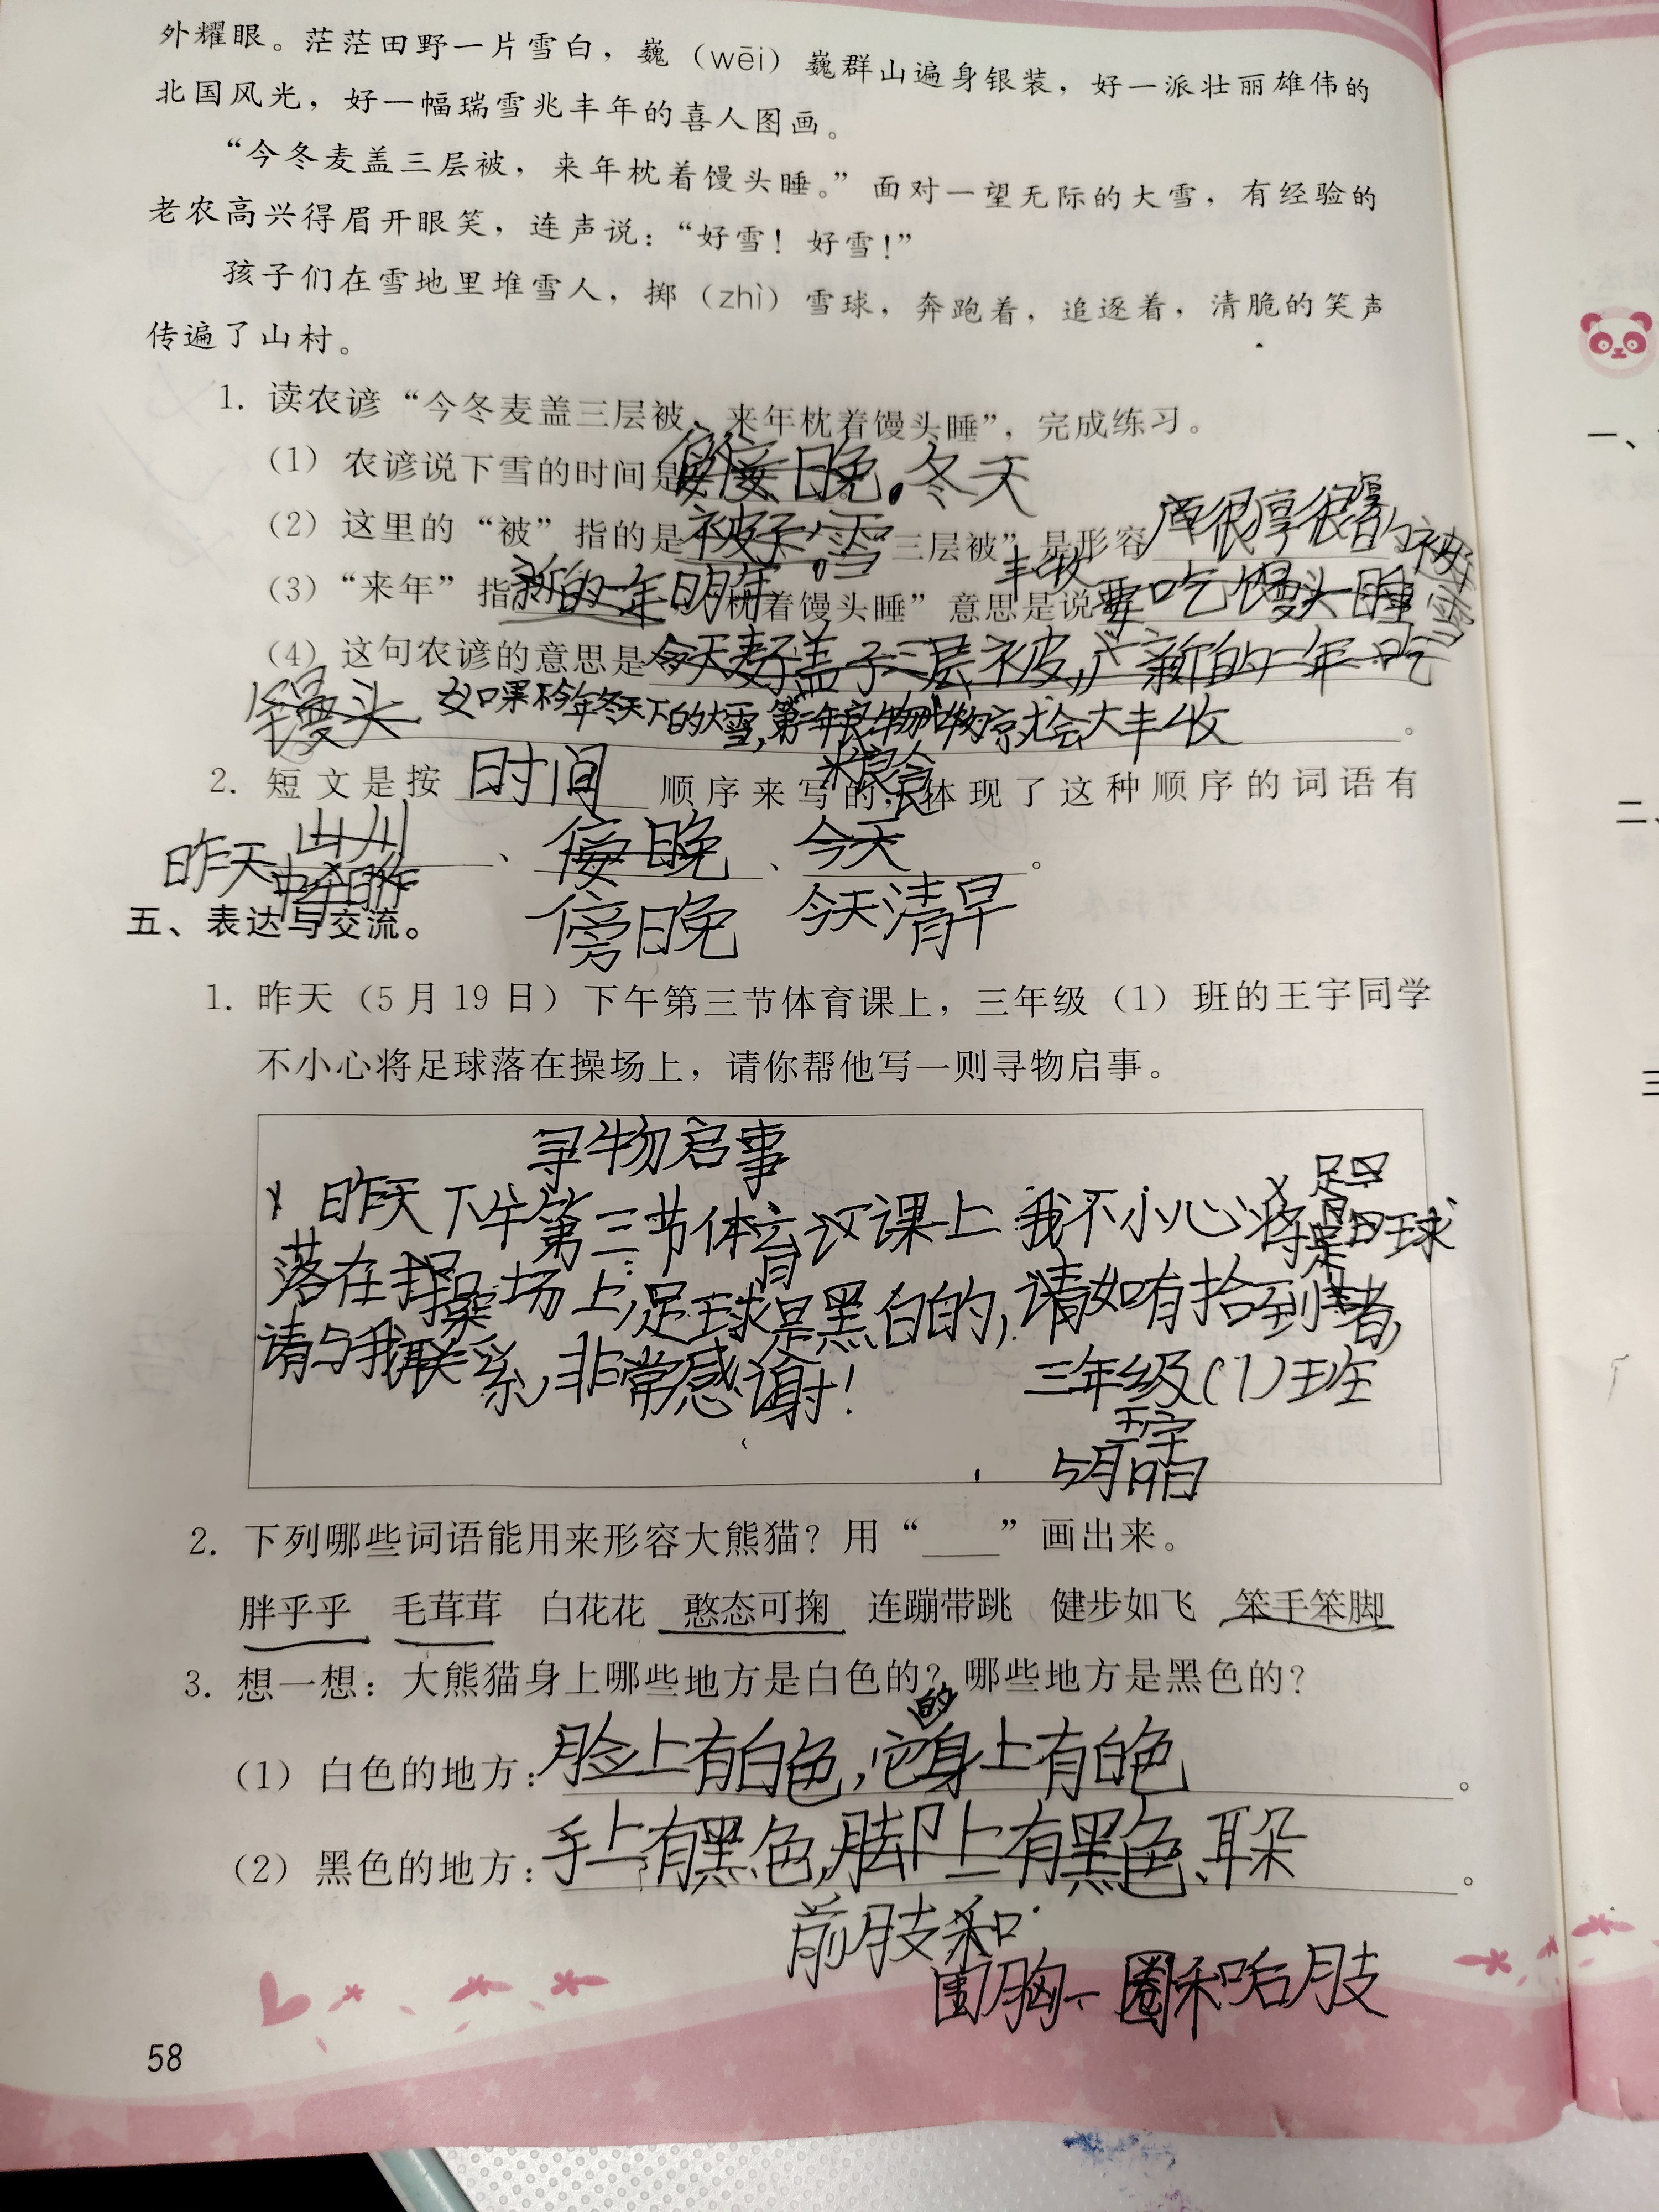 外耀眼。茫茫田野一片雪白，巍（wēi）巍群山遍身银装，好一派壮丽雄伟的
北国风光，好一幅瑞雪兆丰年的喜人图画。
“今冬麦盖三层被，来年枕着馒头睡。”面对一望无际的大雪，有经验的
老农高兴得眉开眼笑，连声说：“好雪！好雪！”
孩子们在雪地里堆雪人，掷（zhì）雪球，奔跑着，追逐着，清脆的笑声
传遍了山村。
1. 读农谚“今冬麦盖三层被，来年枕着馒头睡”，完成练习。
（1）农谚说下雪的时间是 晚。冬天
（2）这里的“被”指的是 被子 雪 “三层被”是形容 很厚很 的被
（3）“来年”指 新的一年 明年 枕着馒头睡”意思是说 要吃馒头睡
丰收
（4）这句农谚的意思是 今天麦子盖子三层被，新的一年吃
馒头 如果今年冬天下的大雪，第二年 就会大丰收。
粮食
2. 短文是按 时间 顺序来写的，体现了这种顺序的词语有
昨天 山川、晚、今天。
傍晚 今天清早
五、表达与交流。
1. 昨天（5月19日）下午第三节体育课上，三年级（1）班的王宇同学
不小心将足球落在操场上，请你帮他写一则寻物启事。
寻物启事
昨天下午第三节体育课上 我不小心将足球
落在操场上，足球是黑白的，请如有拾到者，
请与我联系，非常感谢！
三年级（1）班
王宇
5月19日
2. 下列哪些词语能用来形容大熊猫？用“____”画出来。
胖乎乎 毛茸茸 白花花 憨态可掬 连蹦带跳 健步如飞 笨手笨脚
3. 想一想：大熊猫身上哪些地方是白色的？哪些地方是黑色的？
（1）白色的地方：脸上有白色，它的身上有白色。
（2）黑色的地方：手上有黑色，脚上有黑色、耳朵。
前肢和
围胸一圈和后肢
58
一、
二、
三